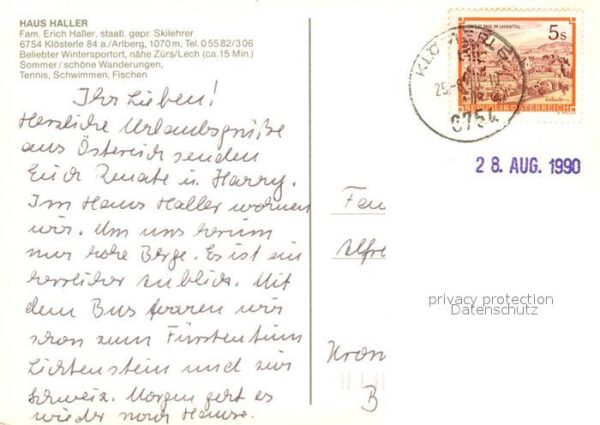 HAUS HALLER
Fam. Erich Haller, staatl. gepr. Skilehrer
6754 Klösterle 84 a./Arlberg, 1070 m, Tel. 0 55 82 / 3 06
Beliebter Wintersportort, nähe Zürs/Lech (ca. 15 Min.)
Sommer / schöne Wanderungen,
Tennis, Schwimmen, Fischen
Ihr Lieben!
Herzliche Urlaubsgrüße
aus Österreich senden
Euch Renate u. Harry.
Im Haus Haller wohnen
wir. Um uns herum
nur hohe Berge. Es ist ein
herrlicher Anblick. Mit
dem Bus waren wir
schon zum Fürstentum
Lichtenstein und zur
Schweiz. Morgen geht es
wieder nach Hause.
5s
REPUBLIK ÖSTERREICH
6754
28. AUG. 1990
Fam
Alfre
privacy protection
Datenschutz
Kron
B